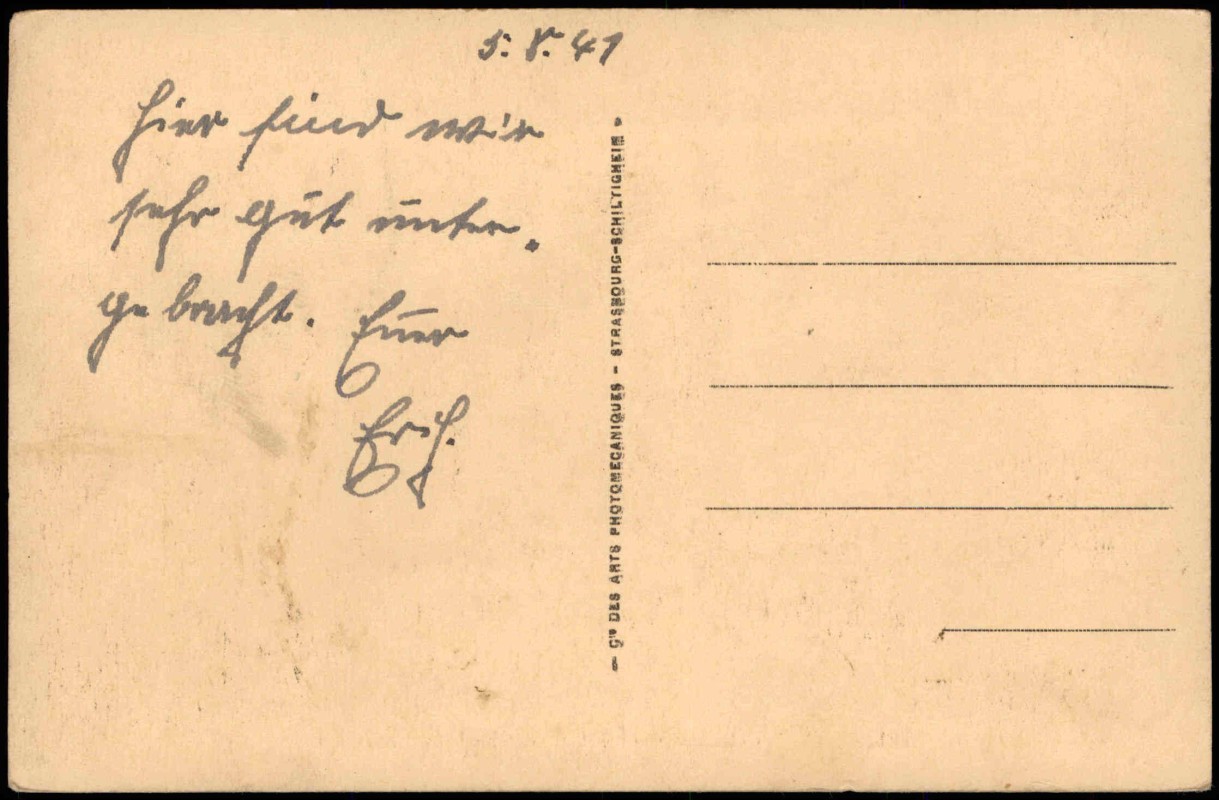 5. 8. 41
Hier sind wir
sehr gut unter-
gebracht. Euer
Erich.
— Cie DES ARTS PHOTOMECANIQUES - STRASBOURG-SCHILTIGHEIM -